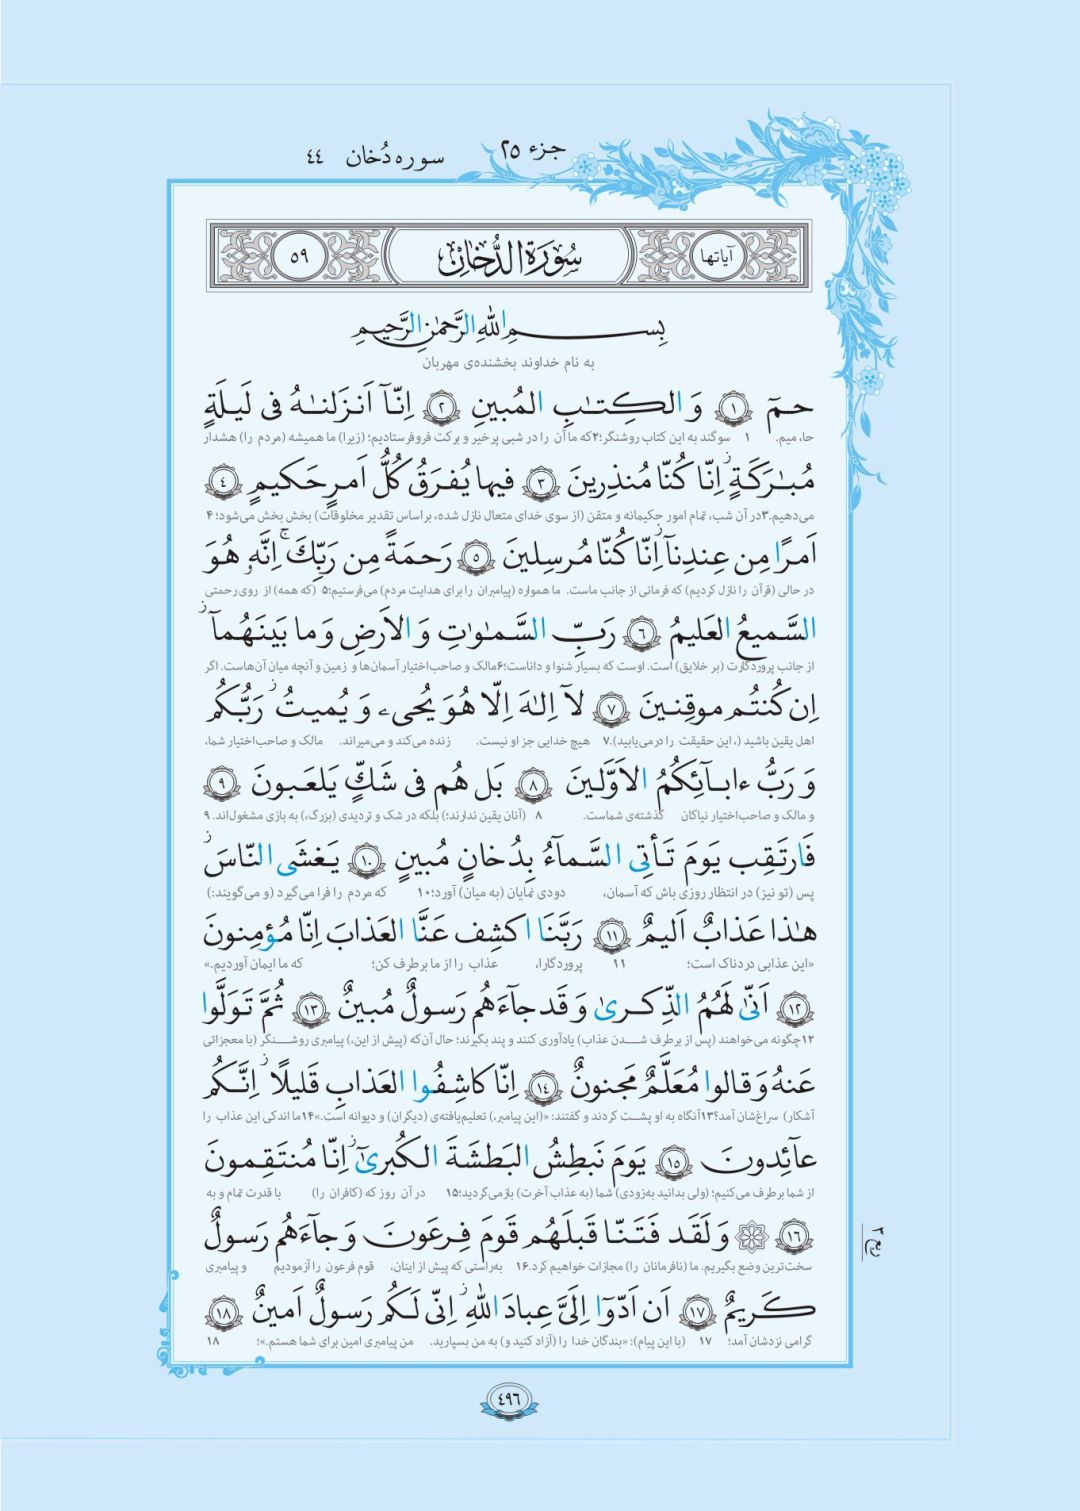 جزء ٢٥
سوره دُخان ٤٤
آیاتها سُورَةُ الدُّخَانِ ٥٩
بِسمِ اللهِ الرَّحمٰنِ الرَّحیمِ
به نام خداوند بخشنده‌ی مهربان
حمٓ ١ وَالکِتٰبِ المُبینِ ٢ اِنّآ اَنزَلنٰهُ فی لَیلَةٍ
حا، میم. ١ سوگند به این کتاب روشنگر؛٢که ما آن را در شبی پرخیر و برکت فروفرستادیم؛ (زیرا) ما همیشه (مردم را) هشدار
مُبٰرَکَةٍ ز اِنّا کُنّا مُنذِرینَ ٣ فیها یُفرَقُ کُلُّ اَمرٍ حَکیمٍ ٤
می‌دهیم.٣در آن شب، تمام امور حکیمانه و متقن (از سوی خدای متعال نازل شده، براساس تقدیر مخلوقات) بخش بخش می‌شود؛ ۴
اَمرًا مِن عِندِنآ ز اِنّا کُنّا مُرسِلینَ ٥ رَحمَةً مِن رَبِّکَ ج اِنَّهٗ هُوَ
در حالی (قرآن را نازل کردیم) که فرمانی از جانب ماست. ما همواره (پیامبران را برای هدایت مردم) می‌فرستیم؛۵ (که همه) از روی رحمتی
السَّمیعُ العَلیمُ ٦ رَبِّ السَّمٰوٰتِ وَالاَرضِ وَما بَینَهُمآ ز
از جانب پروردگارت (بر خلایق) است. اوست که بسیار شنوا و داناست؛۶مالک و صاحب‌اختیار آسمان‌ها و زمین و آنچه میان آن‌هاست. اگر
اِن کُنتُم موقِنینَ ٧ لآ اِلٰهَ اِلّا هُوَ یُحیی وَ یُمیتُ ز رَبُّکُم
اهل یقین باشید (، این حقیقت را درمی‌یابید).٧ هیچ خدایی جز او نیست. زنده می‌کند و می‌میراند. مالک و صاحب‌اختیار شما،
وَ رَبُّ ءابآئِکُمُ الاَوَّلینَ ٨ بَل هُم فی شَکٍّ یَلعَبونَ ٩
و مالک و صاحب‌اختیار نیاکان گذشته‌ی شماست. ٨ (آنان یقین ندارند؛) بلکه در شک و تردیدی (بزرگ،) به بازی مشغول‌اند. ٩
فَارتَقِب یَومَ تَأتِی السَّمآءُ بِدُخانٍ مُبینٍ ١٠ یَغشَی النّاسَ ز
پس (تو نیز) در انتظار روزی باش که آسمان، دودی نمایان (به میان) آورد؛١٠ که مردم را فرا می‌گیرد (و می‌گویند:)
هٰذا عَذابٌ اَلیمٌ ١١ رَبَّنَا اکشِف عَنَّا العَذابَ اِنّا مُؤمِنونَ
«این عذابی دردناک است؛ ١١ پروردگارا، عذاب را از ما برطرف کن؛ که ما ایمان آوردیم.»
١٢ اَنّیٰ لَهُمُ الذِّکریٰ وَ قَد جآءَهُم رَسولٌ مُبینٌ ١٣ ثُمَّ تَوَلَّوا
١٢چگونه می‌خواهند (پس از برطرف شدن عذاب) یادآوری کنند و پند بگیرند؛ حال آن‌که (پیش از این،) پیامبری روشنگر (با معجزاتی
عَنهُ وَ قالوا مُعَلَّمٌ مَجنونٌ ١٤ اِنّا کاشِفُوا العَذابِ قَلیلًا ز اِنَّکُم
آشکار) سراغ‌شان آمد؟١٣آنگاه به او پشت کردند و گفتند: «(این پیامبر،) تعلیم‌یافته‌ی (دیگران) و دیوانه است.»١۴ما اندکی این عذاب را
عآئِدونَ ١٥ یَومَ نَبطِشُ البَطشَةَ الکُبریٰٓ ز اِنّا مُنتَقِمونَ
از شما برطرف می‌کنیم؛ (ولی بدانید به‌زودی) شما (به عذاب آخرت) بازمی‌گردید؛١۵ در آن روز که (کافران را) با قدرت تمام و به
١٦ وَ لَقَد فَتَنّا قَبلَهُم قَومَ فِرعَونَ وَ جآءَهُم رَسولٌ
ربع ٢
سخت‌ترین وضع بگیریم. ما (نافرمانان را) مجازات خواهیم کرد.١۶ به‌راستی که پیش از اینان، قوم فرعون را آزمودیم و پیامبری
کَریمٌ ١٧ اَن اَدّوٓا اِلَیَّ عِبادَ اللهِ ز اِنّی لَکُم رَسولٌ اَمینٌ ١٨
گرامی نزدشان آمد؛ ١٧ (با این پیام): «بندگان خدا را (آزاد کنید و) به من بسپارید. من پیامبری امین برای شما هستم.»؛ ١٨
٤٩٦